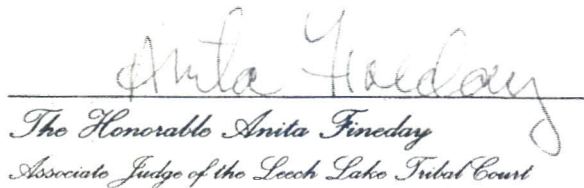 Anita Fineday
The Honorable Anita Fineday
Associate Judge of the Leech Lake Tribal Court